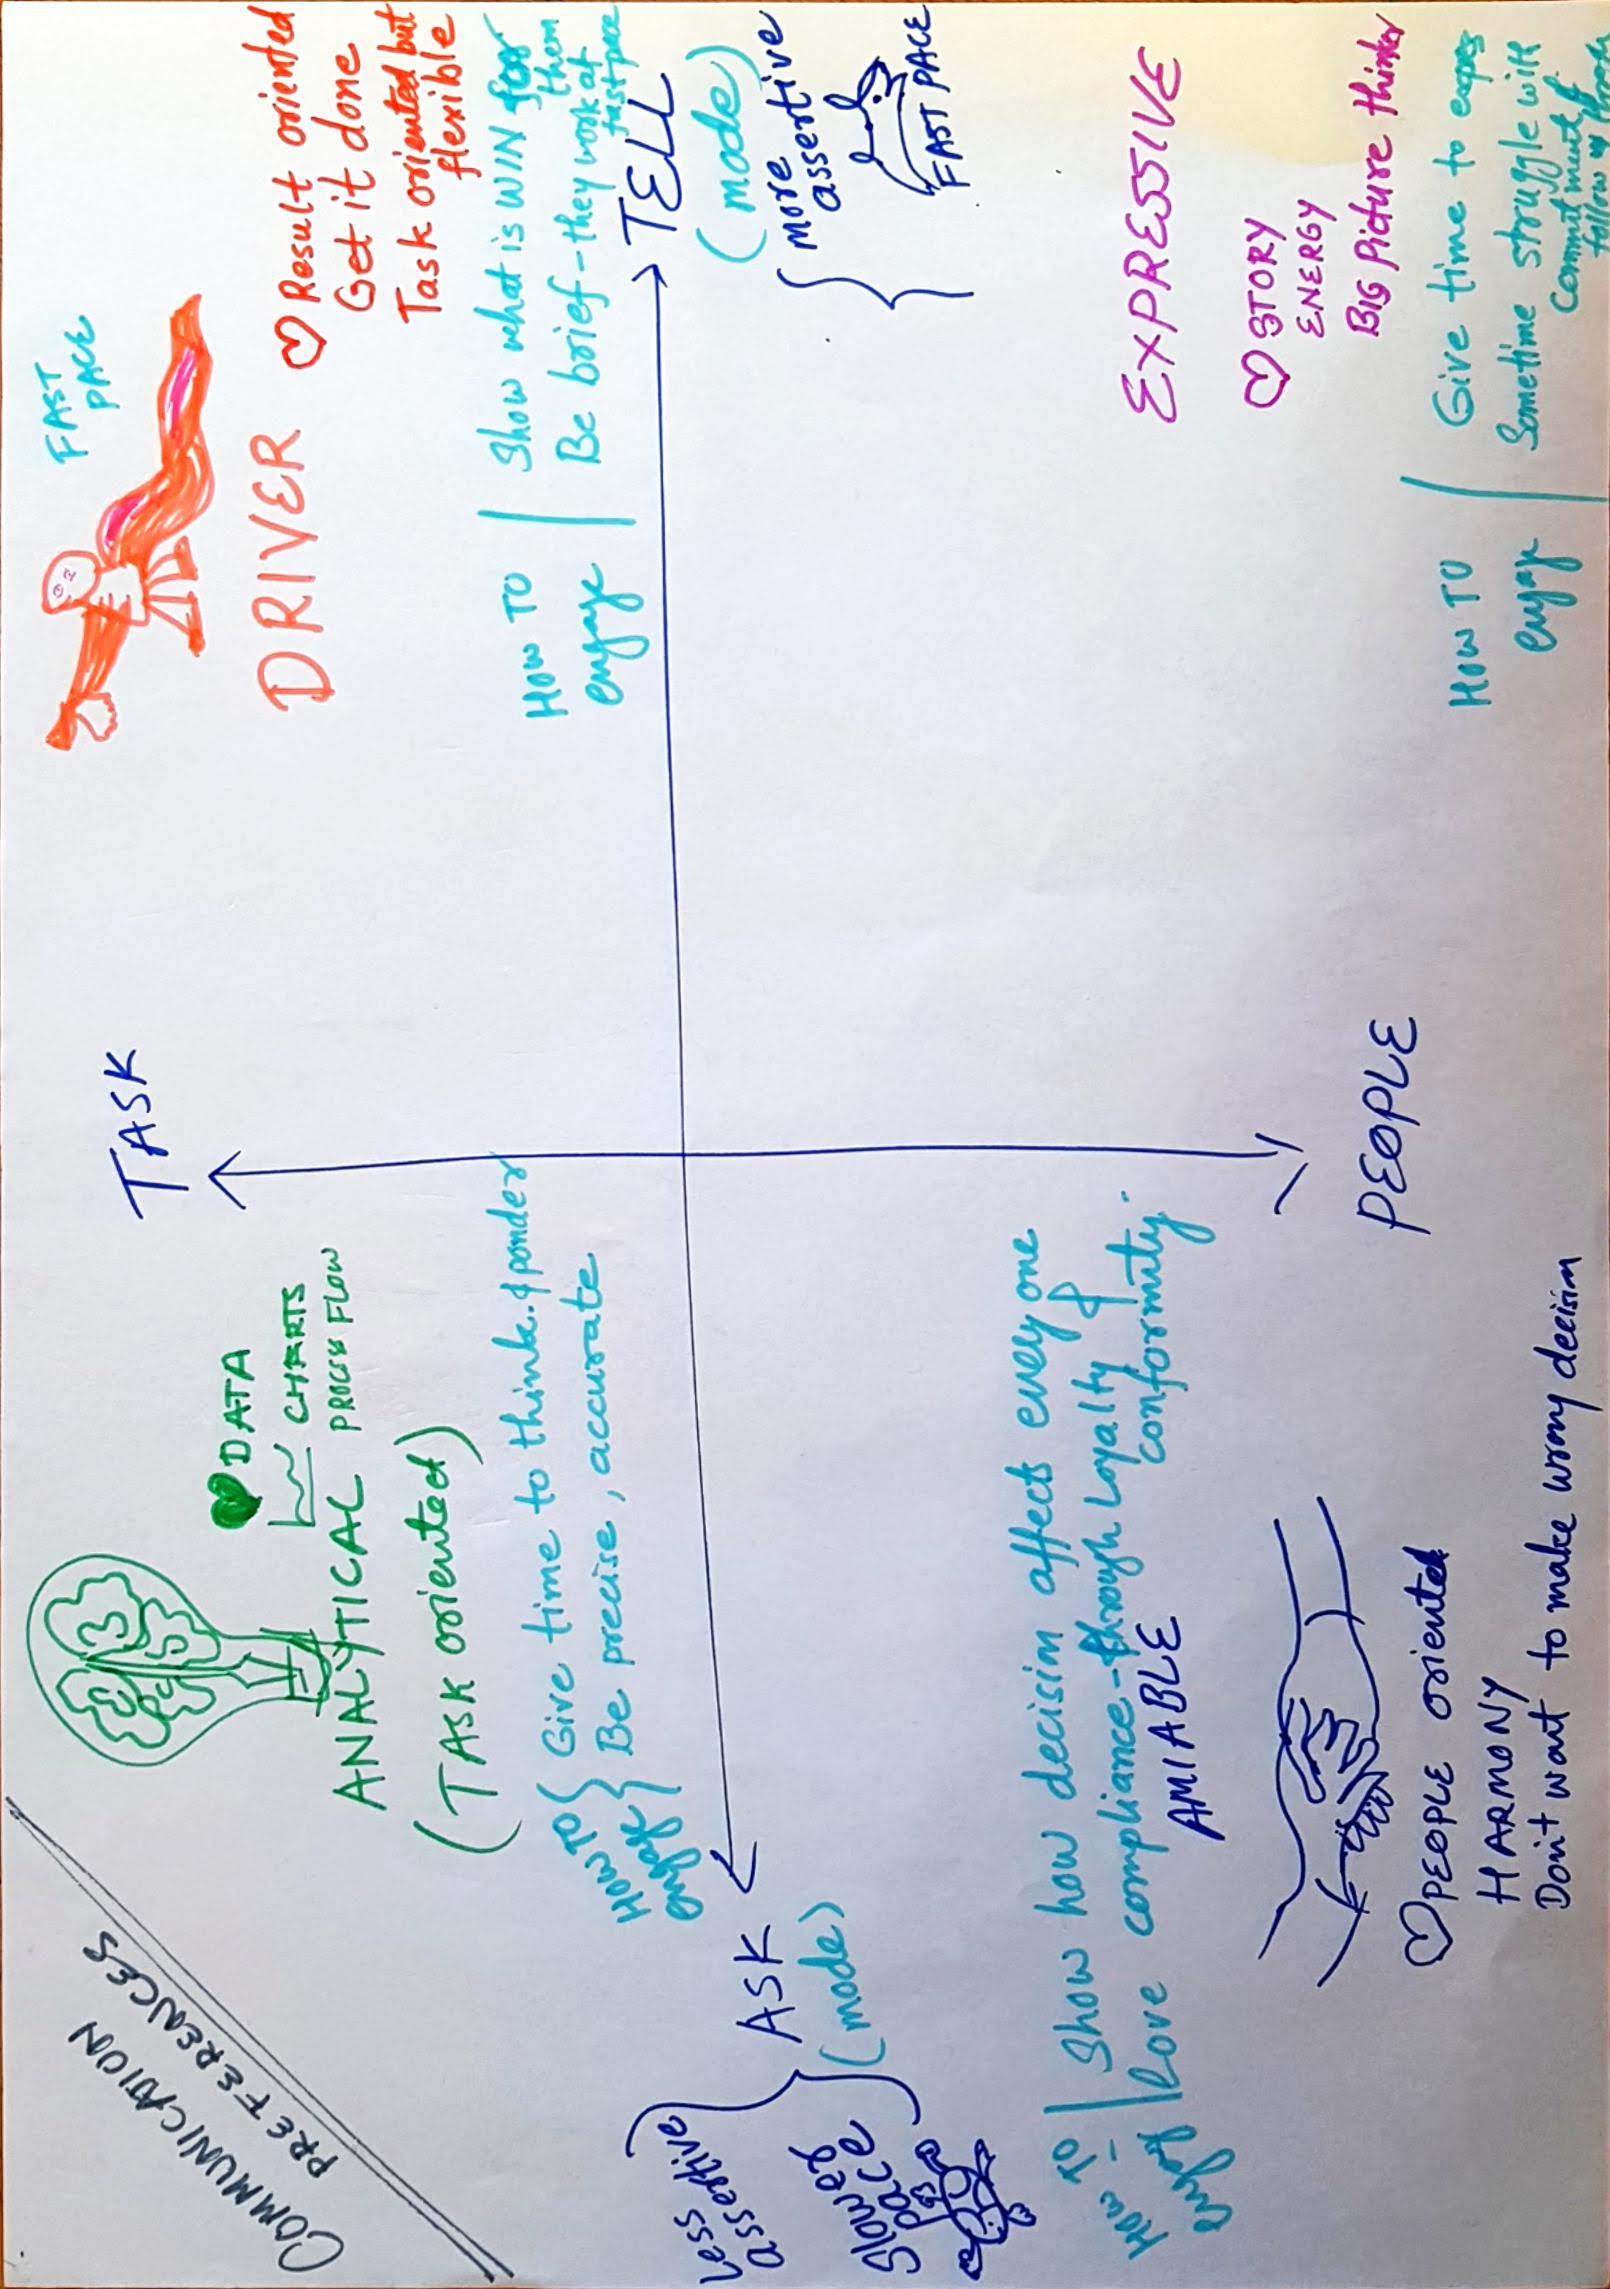 COMMUNICATION
PREFERENCES
TASK
DATA
CHARTS
PROCESS FLOW
ANALYTICAL
(TASK oriented)
HOW TO
engage
Give time to think & ponder
Be precise, accurate
FAST
PACE
DRIVER
Result oriented
Get it done
Task oriented but
flexible
HOW TO
engage
Show what is WIN for
them
Be brief - they work at
fast pace
Less
assertive
Slower
pace
ASK
(mode)
TELL
(mode)
more
assertive
FAST PACE
HOW TO
engage
Show how decision affects every one
Love compliance - through Loyalty &
conformity
AMIABLE
PEOPLE oriented
HARMONY
Don't want to make wrong decision
PEOPLE
EXPRESSIVE
STORY
ENERGY
BIG Picture thinker
HOW TO
engage
Give time to express
Sometime struggle with
Commitment &
follow through